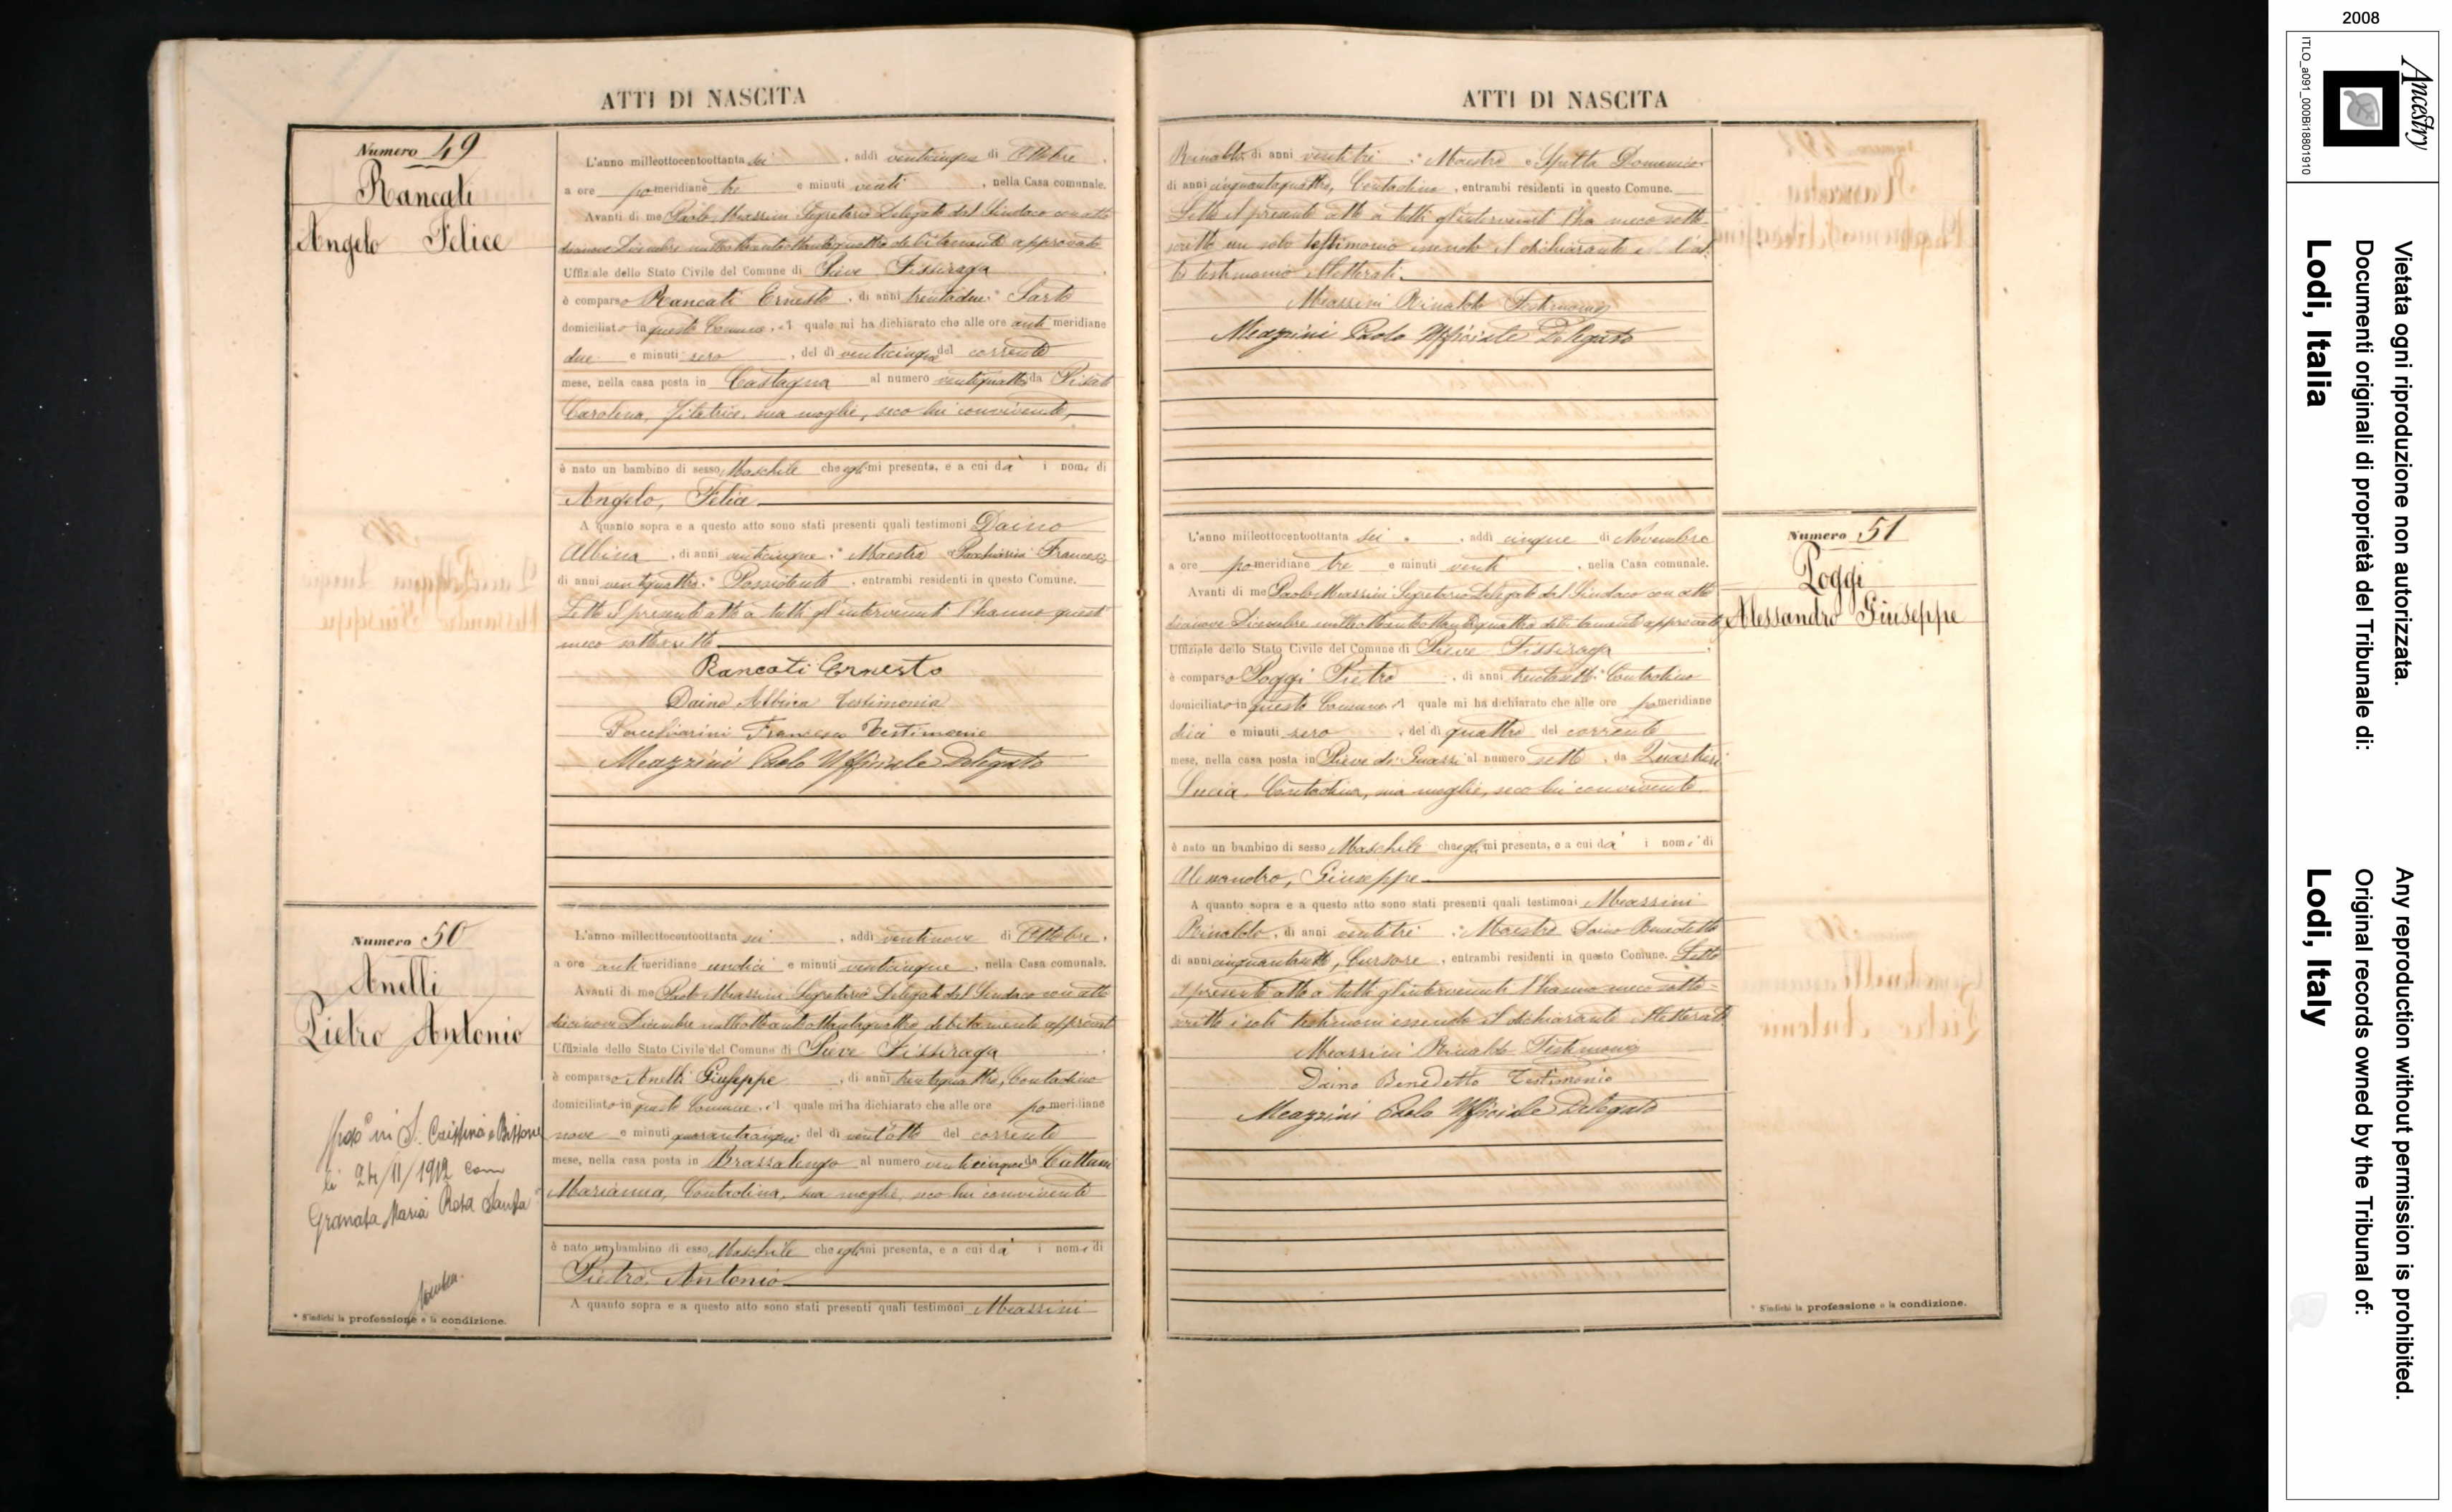 ATTI DI NASCITA
Numero 49
Rancati
Angelo Felice
L'anno milleottocentoottanta sei, addì venticinque di Ottobre,
a ore pomeridiane tre e minuti venti, nella Casa comunale.
Avanti di me Paolo Meazzini Segretario Delegato dal Sindaco con atto
dicianove Dicembre milleottocentottantaquattro debitamente approvato
Uffiziale dello Stato Civile del Comune di Pieve Fissiraga
è comparso Rancati Ernesto, di anni trentadue, Sarto
domiciliato in questo Comune, il quale mi ha dichiarato che alle ore antimeridiane
due e minuti zero, del dì venticinque del corrente
mese, nella casa posta in Castagna al numero ventiquattro da
Carolina, filatrice, sua moglie, seco lui convivente,
è nato un bambino di sesso Maschile che egli mi presenta, e a cui dà i nomi di
Angelo, Felice
A quanto sopra e a questo atto sono stati presenti quali testimoni Daino
Albina, di anni venticinque, Maestra e Pacchiarini Francesco
di anni ventiquattro, Possidente, entrambi residenti in questo Comune.
Letto il presente atto a tutti gl'intervenuti l'hanno questi
meco sottoscritto
Rancati Ernesto
Daino Albina Testimonia
Pacchiarini Francesco Testimonio
Meazzini Paolo Ufficiale Delegato
Numero 50
Anelli
Pietro Antonio
li 24/11/1912 con
Granata Maria Rosa Santa
L'anno milleottocentoottanta sei, addì ventinove di Ottobre,
a ore antimeridiane undici e minuti venticinque, nella Casa comunale.
Avanti di me Paolo Meazzini Segretario Delegato dal Sindaco con atto
dicianove Dicembre milleottocentottantaquattro debitamente approvato
Uffiziale dello Stato Civile del Comune di Pieve Fissiraga
è comparso Anelli Giuseppe, di anni trentaquattro, Contadino
domiciliato in questo Comune, il quale mi ha dichiarato che alle ore pomeridiane
nove e minuti quarantacinque del dì ventotto del corrente
mese, nella casa posta in Brazzalengo al numero venticinque da Cattani
Marianna, Contadina, sua moglie, seco lui convivente
è nato un bambino di sesso Maschile che egli mi presenta, e a cui dà i nomi di
Pietro, Antonio
A quanto sopra e a questo atto sono stati presenti quali testimoni Meazzini
* S'indichi la professione o la condizione.
ATTI DI NASCITA
Rinaldo, di anni ventitrè, Maestro e Spelta Domenico
di anni cinquantaquattro, Contadino, entrambi residenti in questo Comune.
Letto il presente atto a tutti gl'intervenuti l'ha meco sotto-
scritto un solo testimonio essendo il dichiarante e l'al-
tro testimonio illetterati.
Meazzini Rinaldo Testimonio
Meazzini Paolo Ufficiale Delegato
Numero 51
Poggi
Alessandro Giuseppe
L'anno milleottocentoottanta sei, addì cinque di Novembre
a ore pomeridiane tre e minuti venti, nella Casa comunale.
Avanti di me Paolo Meazzini Segretario Delegato dal Sindaco con atto
dicianove Dicembre milleottocentottantaquattro debitamente approvato
Uffiziale dello Stato Civile del Comune di Pieve Fissiraga
è comparso Poggi Pietro, di anni trentasette, Contadino
domiciliato in questo Comune, il quale mi ha dichiarato che alle ore pomeridiane
dieci e minuti zero, del dì quattro del corrente
mese, nella casa posta in Pieve di Guazzi al numero sette, da
Lucia, Contadina, sua moglie, seco lui convivente
è nato un bambino di sesso Maschile che egli mi presenta, e a cui dà i nomi di
Alessandro, Giuseppe
A quanto sopra e a questo atto sono stati presenti quali testimoni Meazzini
Rinaldo, di anni ventitrè, Maestro Daino Benedetto
di anni cinquantasette, Cursore, entrambi residenti in questo Comune. Letto
il presente atto a tutti gl'intervenuti l'hanno meco sotto-
scritto i soli testimoni essendo il dichiarante illetterato.
Meazzini Rinaldo Testimonio
Daino Benedetto Testimonio
Meazzini Paolo Ufficiale Delegato
* S'indichi la professione o la condizione.
2008
Ancestry
ITLO_a091_000Bi1801910
Vietata ogni riproduzione non autorizzata.
Documenti originali di proprietà del Tribunale di:
Lodi, Italia
Any reproduction without permission is prohibited.
Original records owned by the Tribunal of:
Lodi, Italy